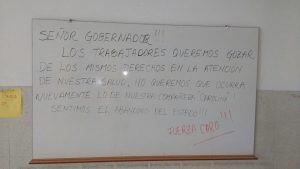 SEÑOR GOBERNADOR!!!
LOS TRABAJADORES QUEREMOS GOZAR
DE LOS MISMOS DERECHOS EN LA ATENCION
DE NUESTRA SALUD. NO QUEREMOS QUE OCURRA
NUEVAMENTE LO DE NUESTRA COMPAÑERA "CAROLINA"!
SENTIMOS EL ABANDONO DEL ESTADO!!!
FUERZA CARO !!!